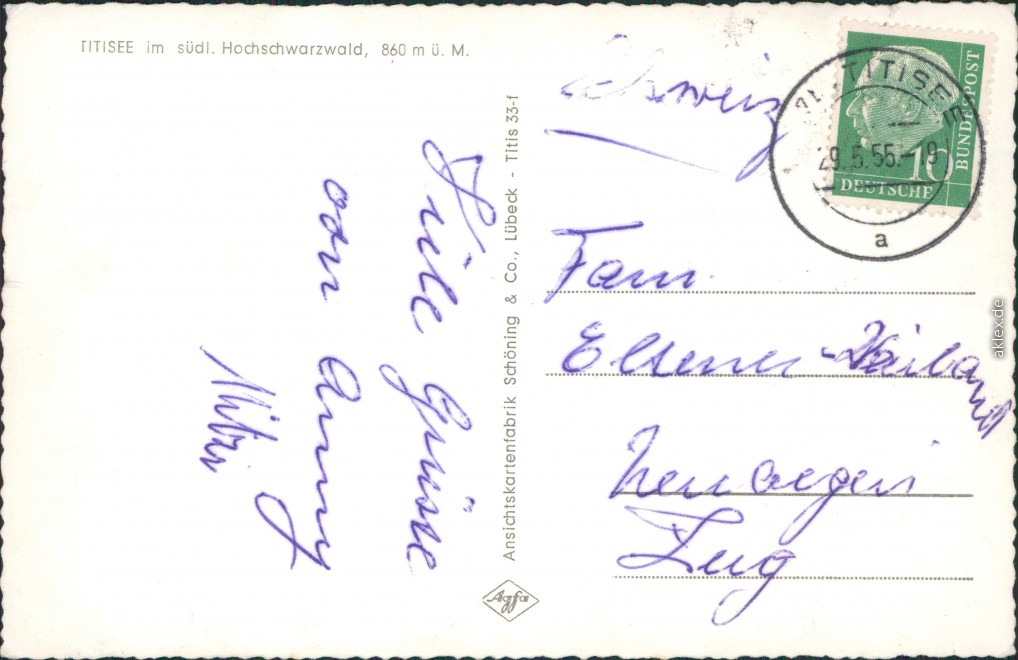 TITISEE im südl. Hochschwarzwald, 860 m ü. M.
Viele Grüsse
von Anny
Ansichtskartenfabrik Schöning & Co., Lübeck - Titis 33-f
Agfa
Schweiz
TITISEE
29.5.55.-9
a
10
DEUTSCHE
BUNDESPOST
Fam
Elsener-
Neuaegeri
Zug
aklex.de